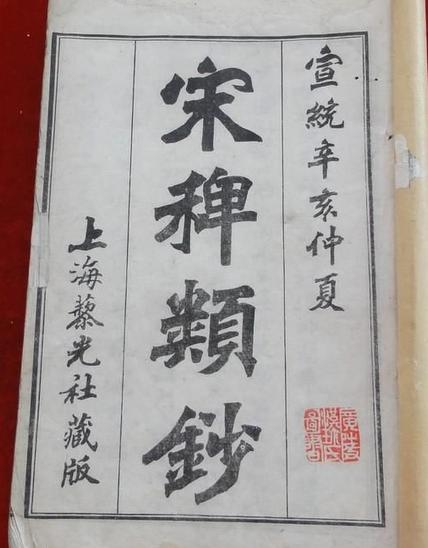 宣統辛亥仲夏
宋稗類鈔
上海藜光社藏版